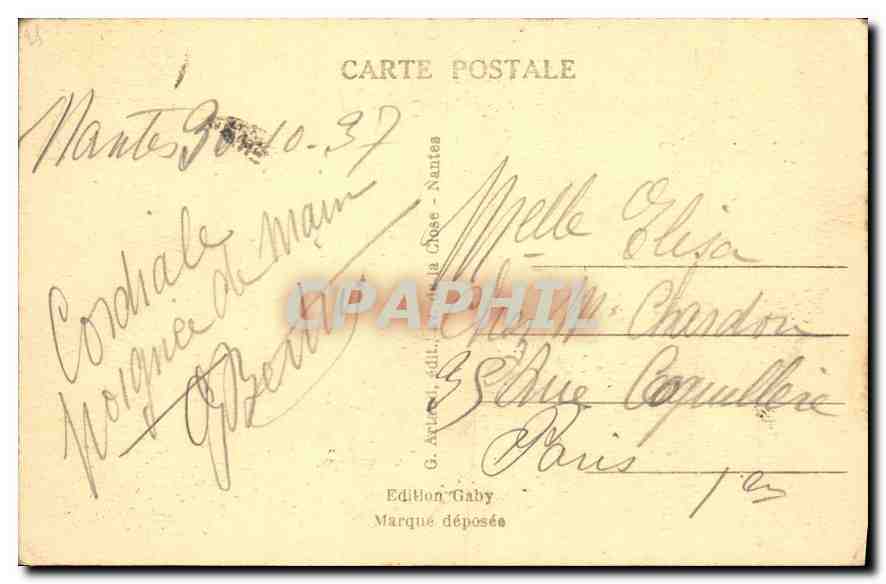 CARTE POSTALE
Nantes 30-10-37
Cordiale
poignée de main
Melle Elisa
Chez Mr Chardon
35 Rue Coquillère
Paris 1er
G. Artaud, édit., de la Close - Nantes
Edition Gaby
Marque déposée
CPAPHIL